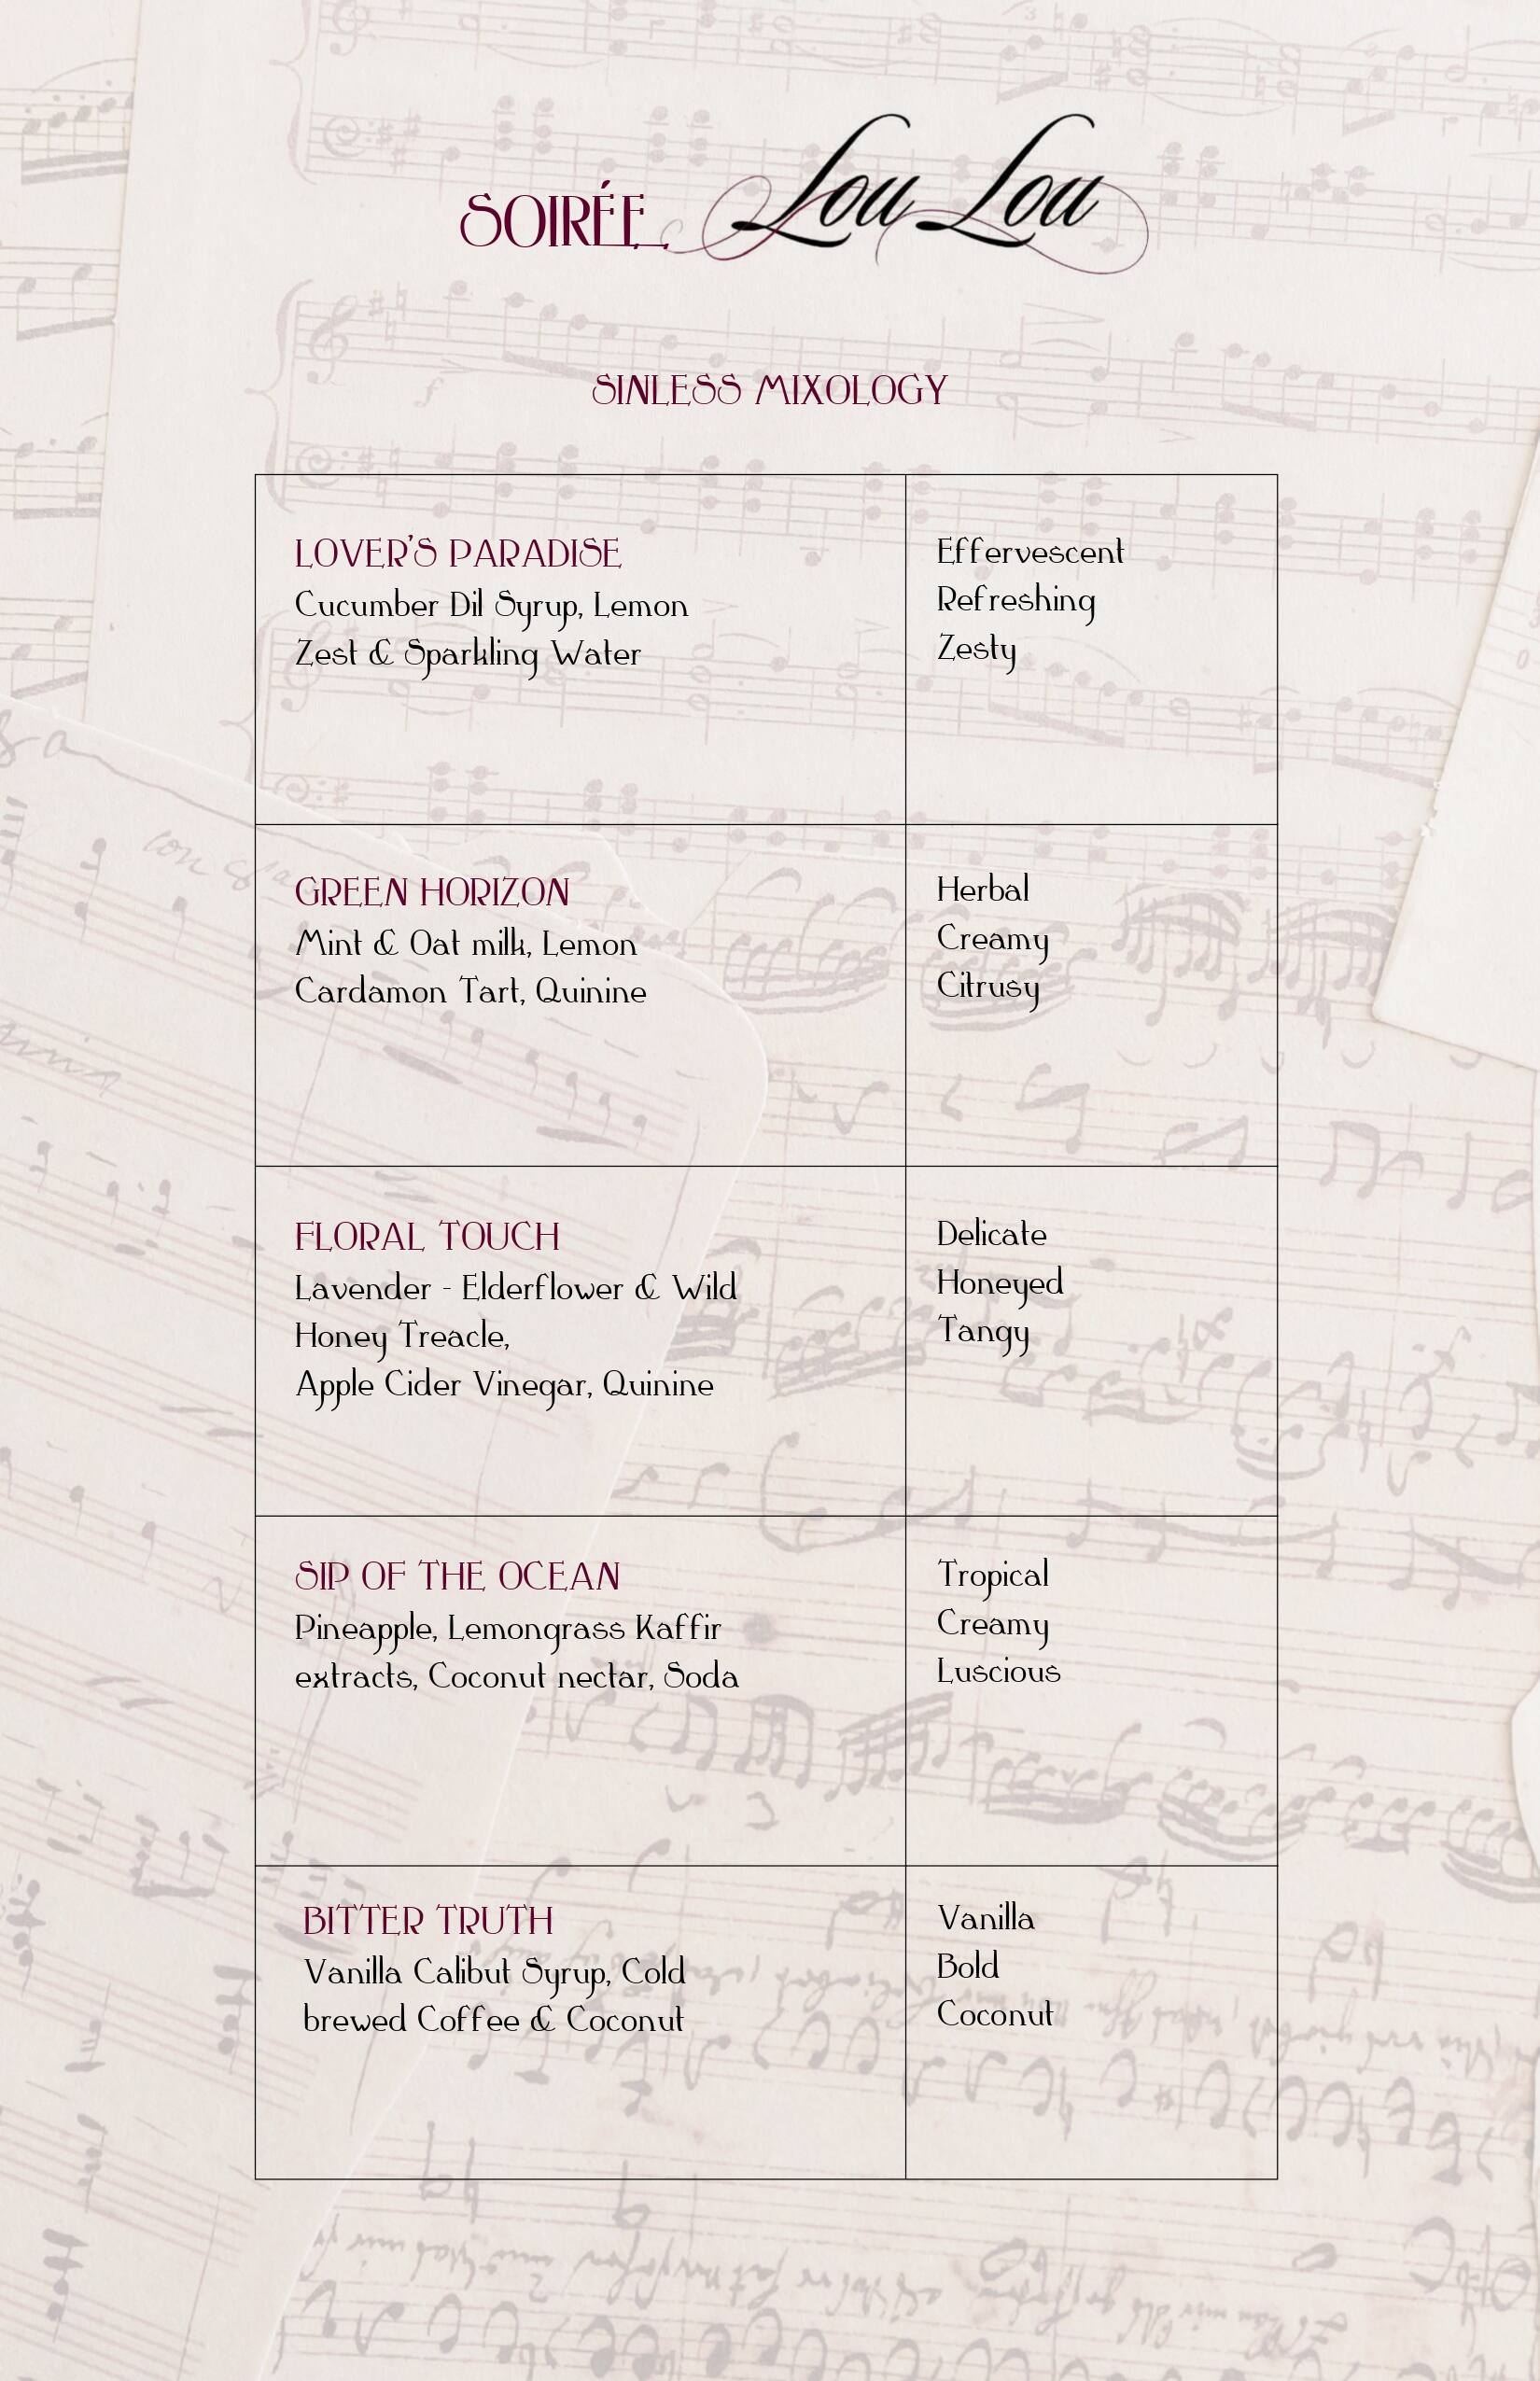 SOIRÉE Lou Lou
SINLESS MIXOLOGY
LOVER'S PARADISE
Cucumber Dil Syrup, Lemon
Zest & Sparkling Water
Effervescent
Refreshing
Zesty
GREEN HORIZON
Mint & Oat milk, Lemon
Cardamon Tart, Quinine
Herbal
Creamy
Citrusy
FLORAL TOUCH
Lavender - Elderflower & Wild
Honey Treacle,
Apple Cider Vinegar, Quinine
Delicate
Honeyed
Tangy
SIP OF THE OCEAN
Pineapple, Lemongrass Kaffir
extracts, Coconut nectar, Soda
Tropical
Creamy
Luscious
BITTER TRUTH
Vanilla Calibut Syrup, Cold
brewed Coffee & Coconut
Vanilla
Bold
Coconut